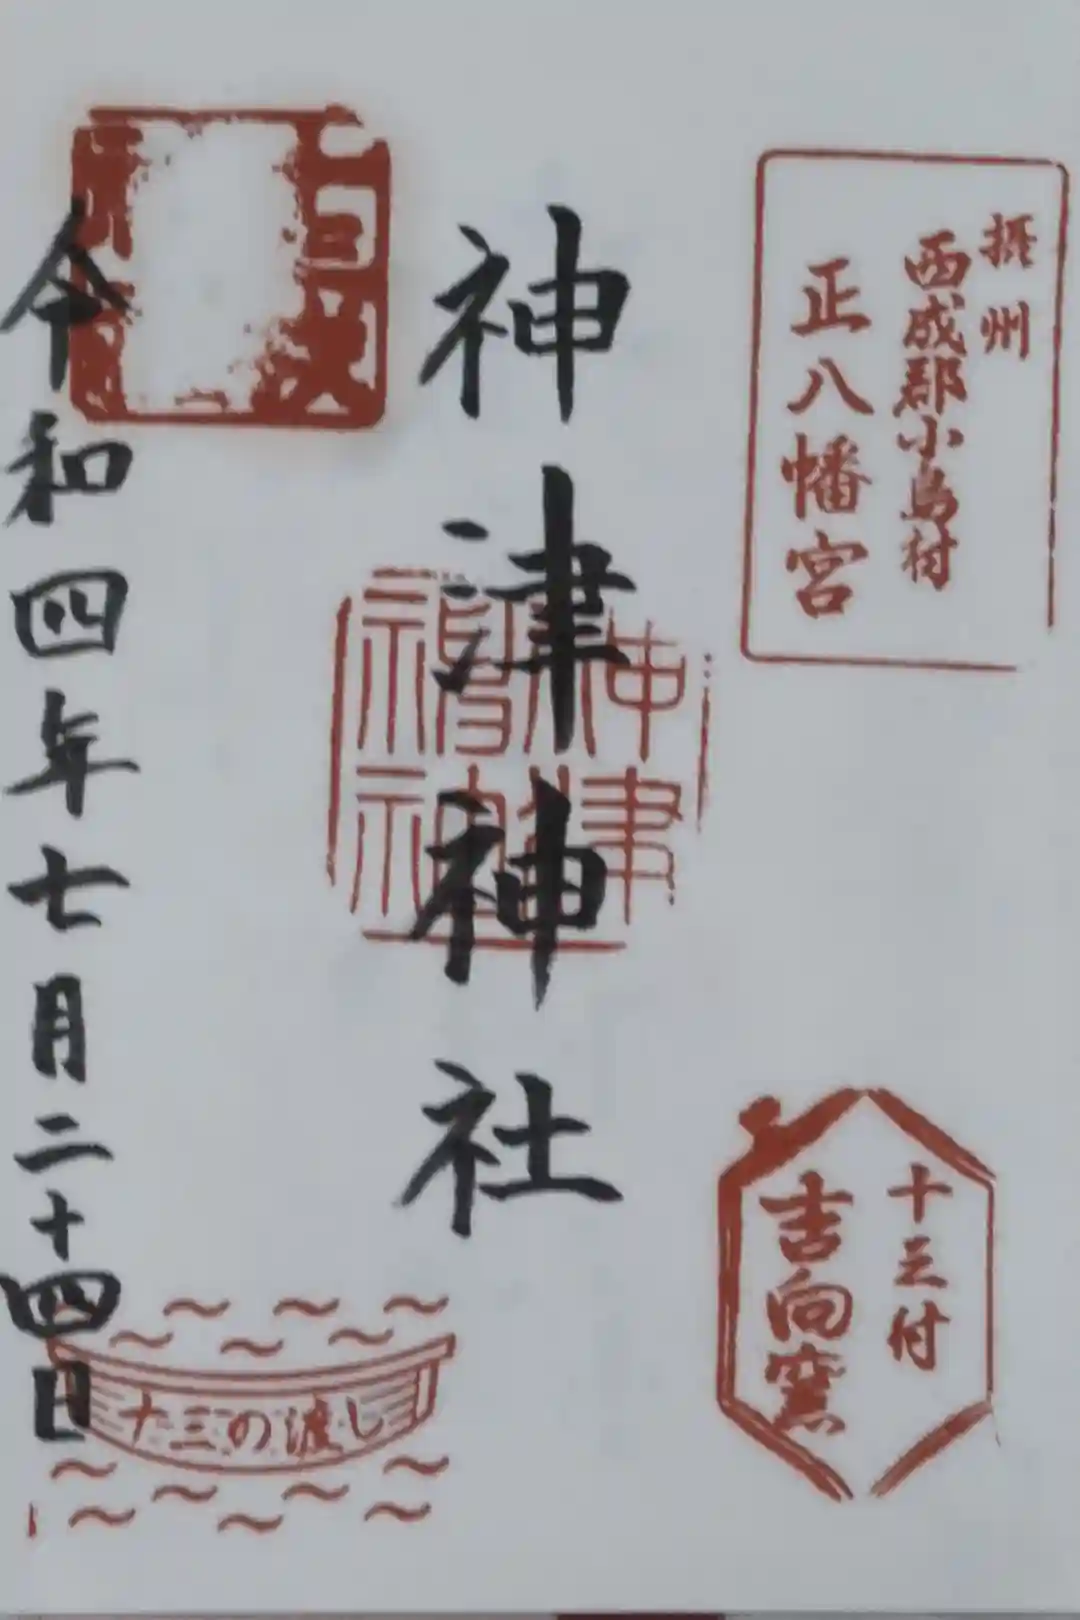 摂州
西成郡小島村
正八幡宮
十三付
吉向窯
神津神社
令和四年七月二十四日
十三の渡し